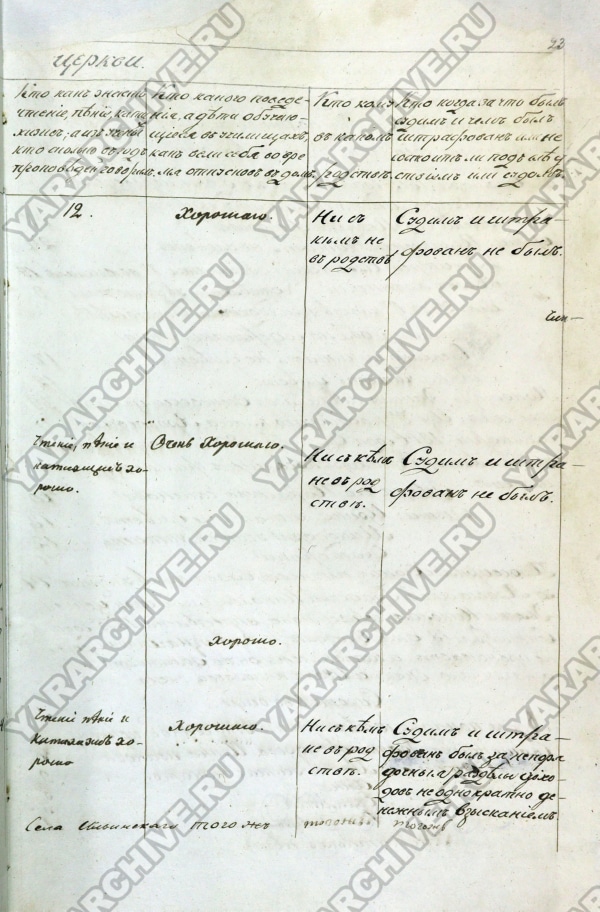 23
церкви.
Кто какъ знаетъ
чтеніе, пѣніе, кати
хизисъ; а изъ
кто сколько въ годъ
проповѣдей говорилъ.
Кто какого поведе-
нія, а дѣти обучаю-
щіеся въ училищахъ,
какъ вели себя во вре
мя отпусковъ въ домъ.
Кто кому
въ какомъ
родствѣ.
Кто когда за что былъ
судимъ и чѣмъ былъ
штрафованъ или не
состоитъ ли подъ слѣд
ствіемъ или судомъ.
12.
Хорошаго.
Ни съ
кѣмъ не
въ родствѣ
Судимъ и штра-
фованъ не былъ.
Чтеніе, пѣніе и
катихизисъ хо-
рошо.
Очень хорошаго.
Ни съ кѣмъ
не въ род
ствѣ.
Судимъ и штра-
фованъ не былъ.
хорошо.
Чтеніе пѣніе и
катихизисъ хо-
рошо
Хорошаго.
Ни съ кѣмъ
не въ род
ствѣ.
Судимъ и штра-
фованъ былъ за непоря
дочные раздѣлы дохо-
довъ неоднократно де-
нежнымъ взысканіемъ
Села Ильинскаго тогожъ
YARARCHIVE.RU